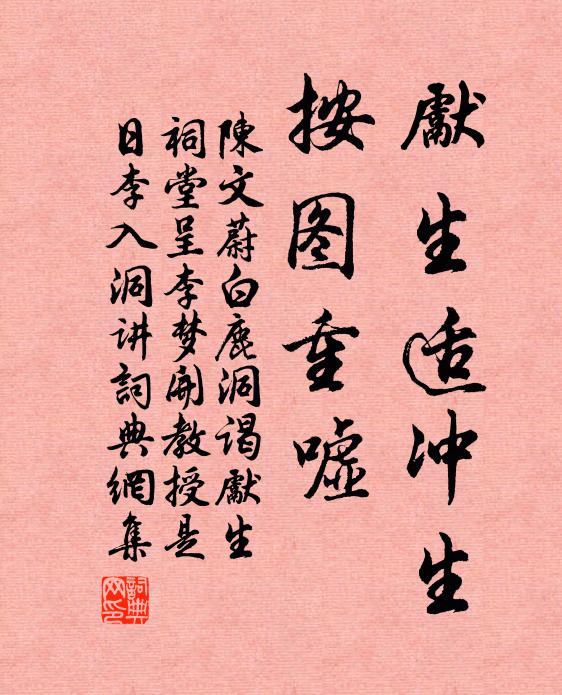 獻生适冲生
按图重嘘
陳文蔚白鹿洞谒獻生
祠堂呈李梦開教授是
日李入洞讲詞典網集
詞典
网印